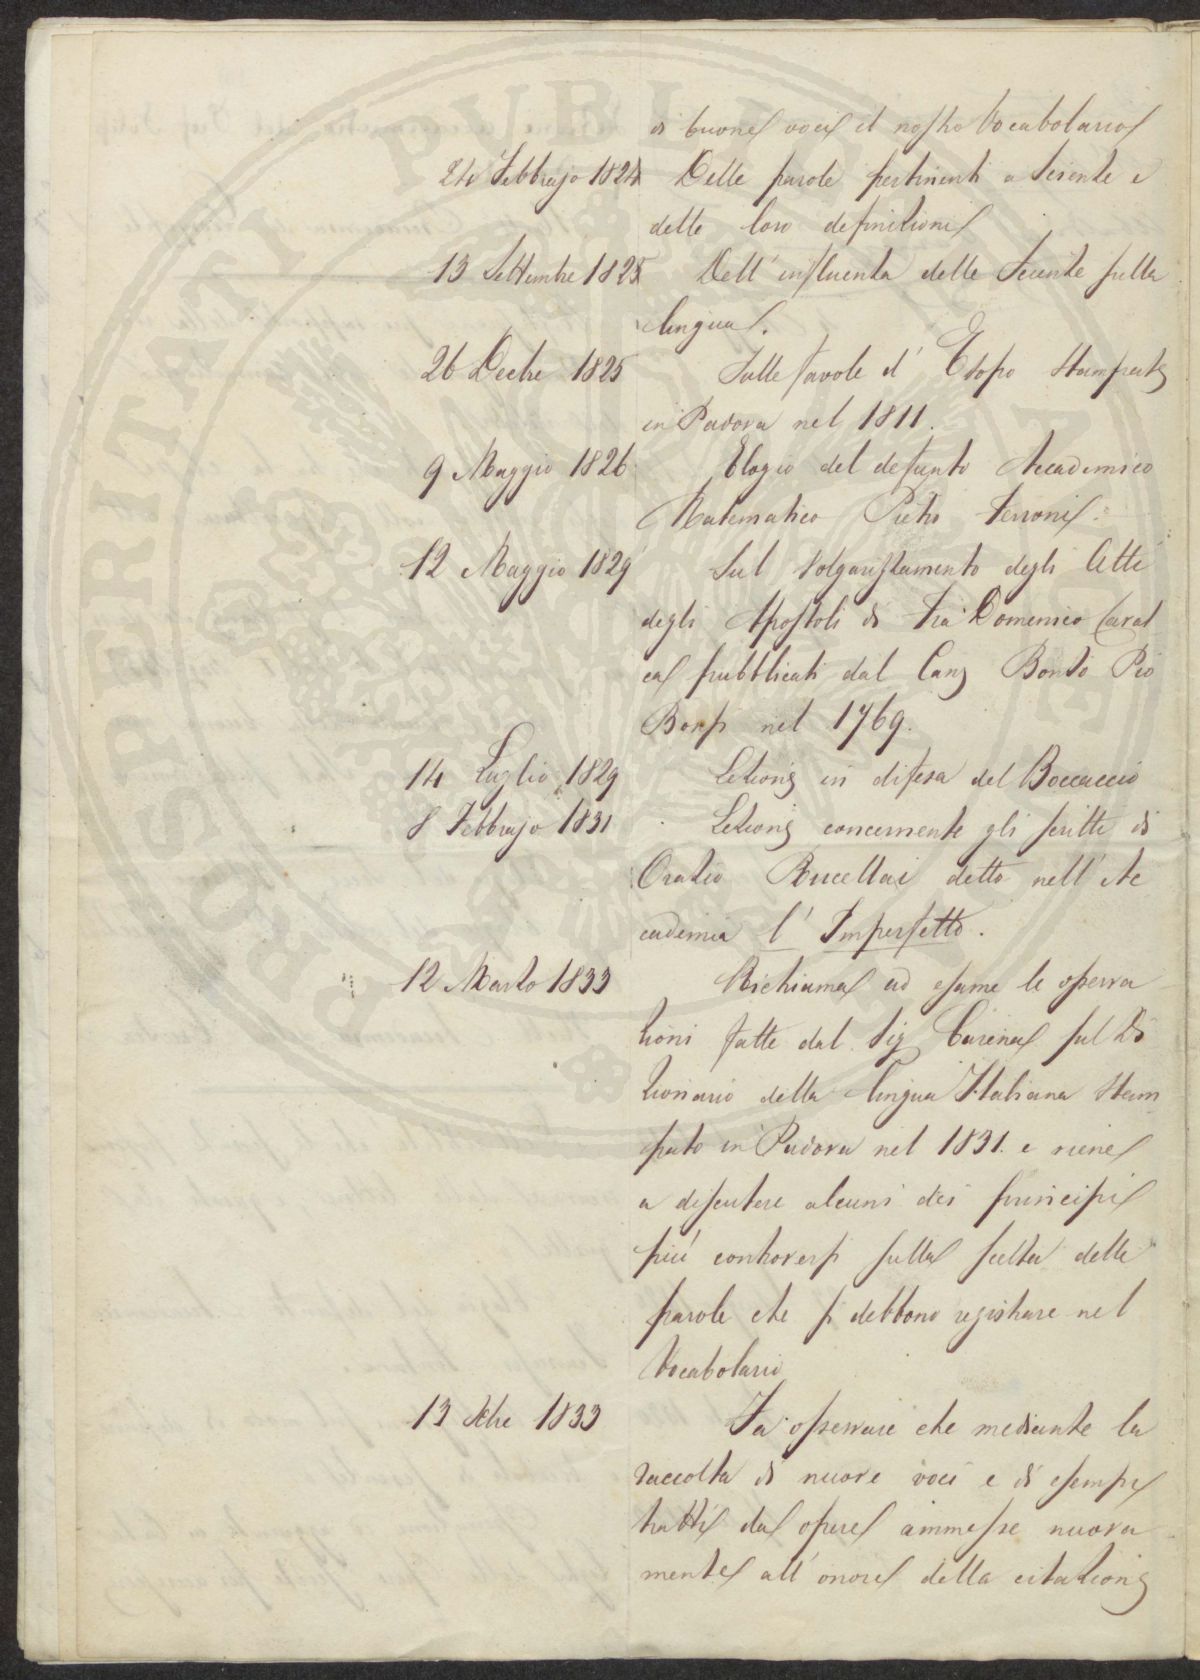 di buone voci il nostro Vocabolario
24 Febbrajo 1824 Delle parole pertinenti a Scienze e
delle loro definizioni
13 Settembre 1825 Dell'influenza delle Scienze sulla
lingua.
26 Decbre 1825 Sulle favole d'Esopo stampate
in Padova nel 1811.
9 Maggio 1826 Elogio del defunto Accademico
Matematico Pietro Ferroni.
12 Maggio 1829 Sul Volgarizzamento degli Atti
degli Apostoli di Fra Domenico Caval
ca pubblicati dal Can
nel 1769.
14 Luglio 1829 Lezione in difesa del Boccaccio
8 Febbrajo 1831 Lezione concernente gli scritti di
Orazio Rucellai detto nell'Ac
cademia l'Imperfetto.
12 Marzo 1833 Richiama ad esame le osserva
zioni fatte dal Sig Carena sul Di
zionario della lingua Italiana stam
pato in Padova nel 1831. e viene
a discutere alcuni dei principii
più controversi sulla scelta delle
parole che si debbono registrare nel
Vocabolario
13 1833 Fa osservare che mediante la
raccolta di nuove voci e di esempi
tratti da opere ammesse nuova
mente all'onore della citazione
PERITATI PUBLI